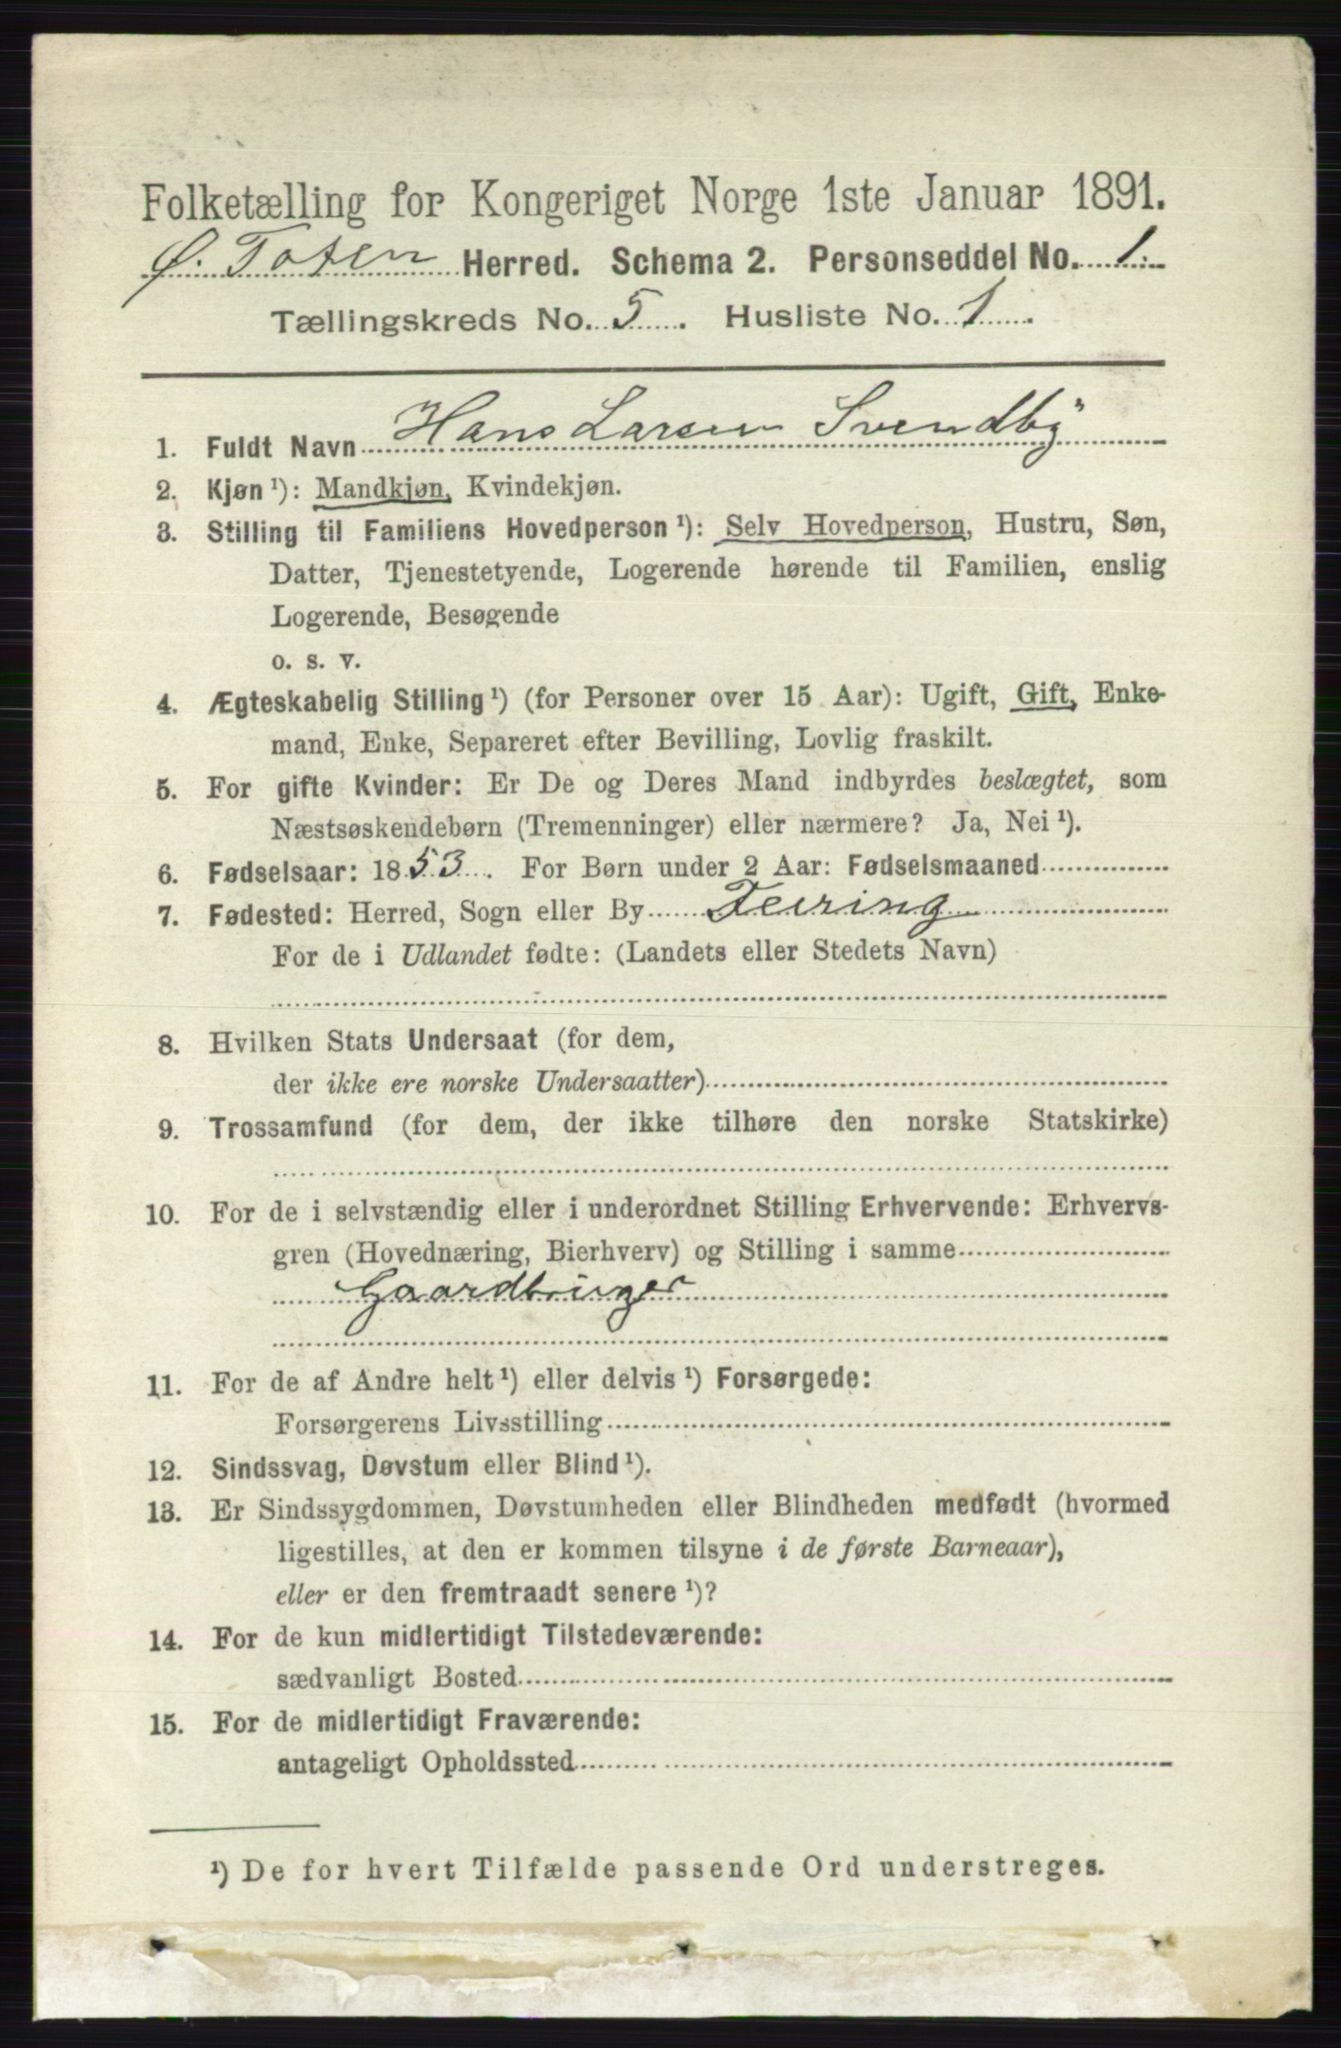 Folketælling for Kongeriget Norge 1ste Januar 1891.
Ø. Toten Herred. Schema 2. Personseddel No. 1.
Tællingskreds No. 5. Husliste No. 1.
1. Fuldt Navn Hans Larsen Svendby
2. Kjøn ¹): Mandkjøn, Kvindekjøn.
3. Stilling til Familiens Hovedperson ¹): Selv Hovedperson, Hustru, Søn,
Datter, Tjenestetyende, Logerende hørende til Familien, enslig
Logerende, Besøgende
o. s. v.
4. Ægteskabelig Stilling ¹) (for Personer over 15 Aar): Ugift, Gift, Enke-
mand, Enke, Separeret efter Bevilling, Lovlig fraskilt.
5. For gifte Kvinder: Er De og Deres Mand indbyrdes beslægtet, som
Næstsøskendebørn (Tremenninger) eller nærmere? Ja, Nei ¹).
6. Fødselsaar: 1853. For Børn under 2 Aar: Fødselsmaaned
7. Fødested: Herred, Sogn eller By Feiring
For de i Udlandet fødte: (Landets eller Stedets Navn)
8. Hvilken Stats Undersaat (for dem,
der ikke ere norske Undersaatter)
9. Trossamfund (for dem, der ikke tilhøre den norske Statskirke)
10. For de i selvstændig eller i underordnet Stilling Erhvervende: Erhvervs-
gren (Hovednæring, Bierhverv) og Stilling i samme
Gaardbruger
11. For de af Andre helt ¹) eller delvis ¹) Forsørgede:
Forsørgerens Livsstilling
12. Sindssvag, Døvstum eller Blind ¹).
13. Er Sindssygdommen, Døvstumheden eller Blindheden medfødt (hvormed
ligestilles, at den er kommen tilsyne i de første Barneaar),
eller er den fremtraadt senere ¹)?
14. For de kun midlertidigt Tilstedeværende:
sædvanligt Bosted
15. For de midlertidigt Fraværende:
antageligt Opholdssted
¹) De for hvert Tilfælde passende Ord understreges.